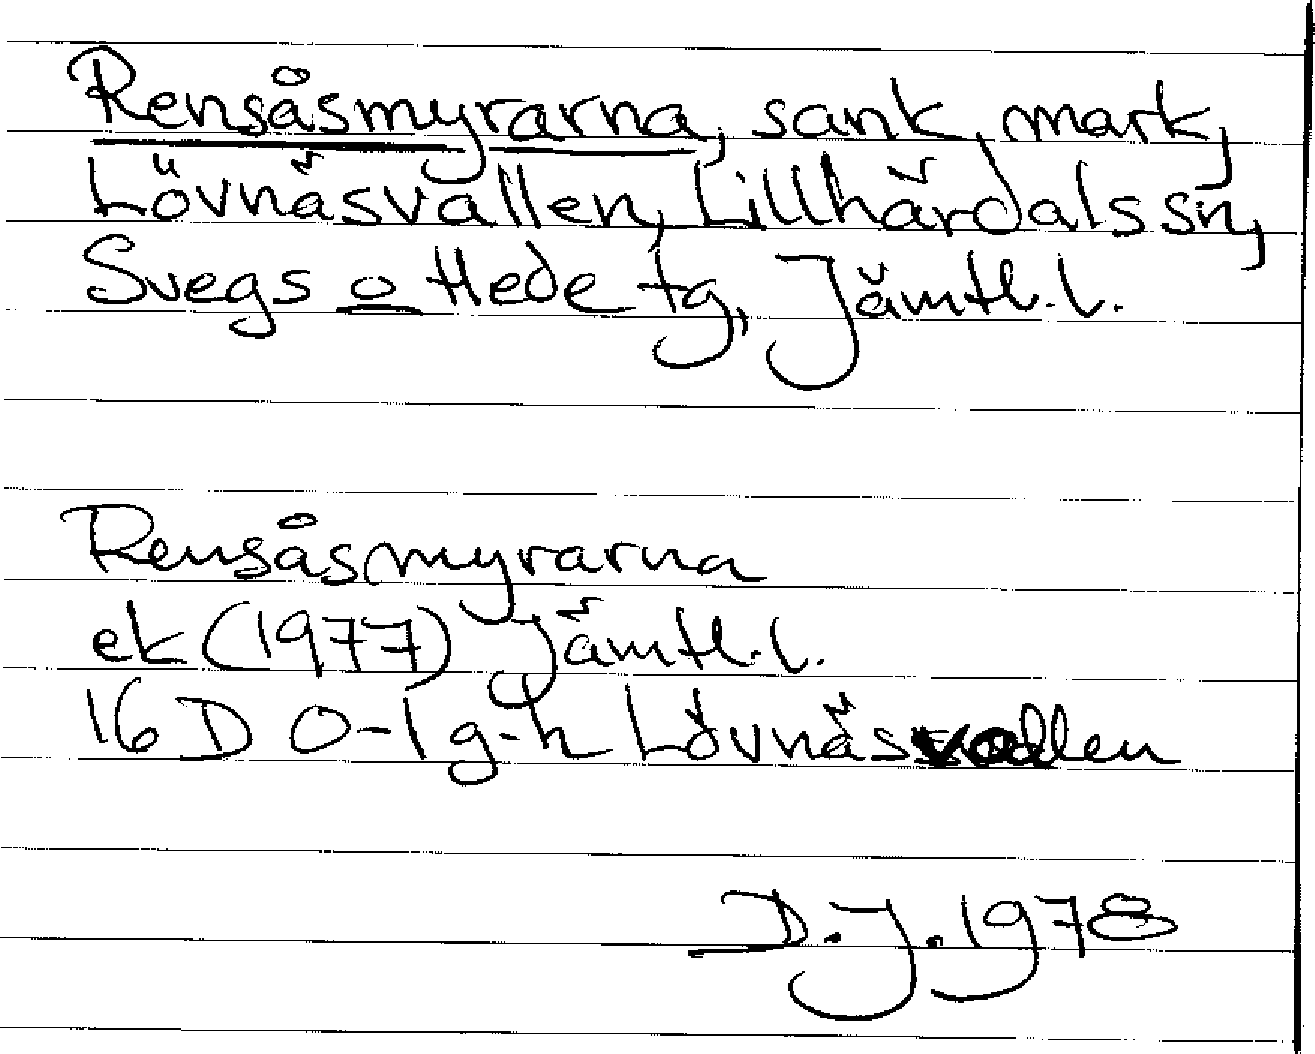 Rensåsmyrarna, sank mark,
Lövnäsvallen, Lillhärdals sn,
Svegs o Hede tg, Jämtl. l.
Rensåsmyrarna
ek (1977) Jämtl. l.
16 D 0-1 g-h Lövnäsvallen
D.J. 1978